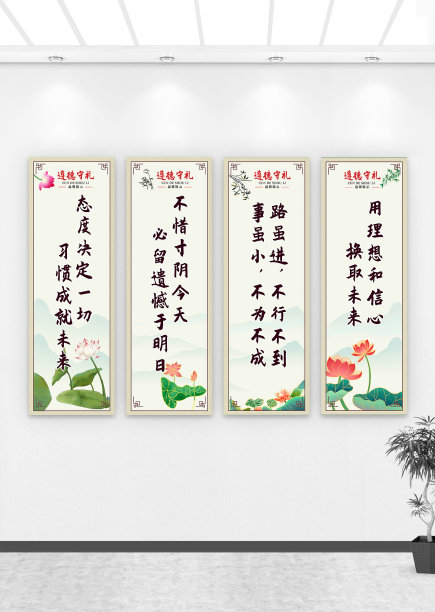 遵德守礼
ZUN DE SHOU LI
温馨提示
态度决定一切
习惯成就未来
遵德守礼
ZUN DE SHOU LI
温馨提示
不惜寸阴今天
必留遗憾于明日
遵德守礼
ZUN DE SHOU LI
温馨提示
路虽进，不行不到
事虽小，不为不成
遵德守礼
ZUN DE SHOU LI
温馨提示
用理想和信心
换取未来